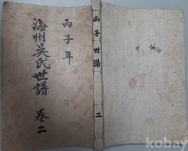 丙子年
海州吳氏世譜 卷二
丙子世譜 二
kobay